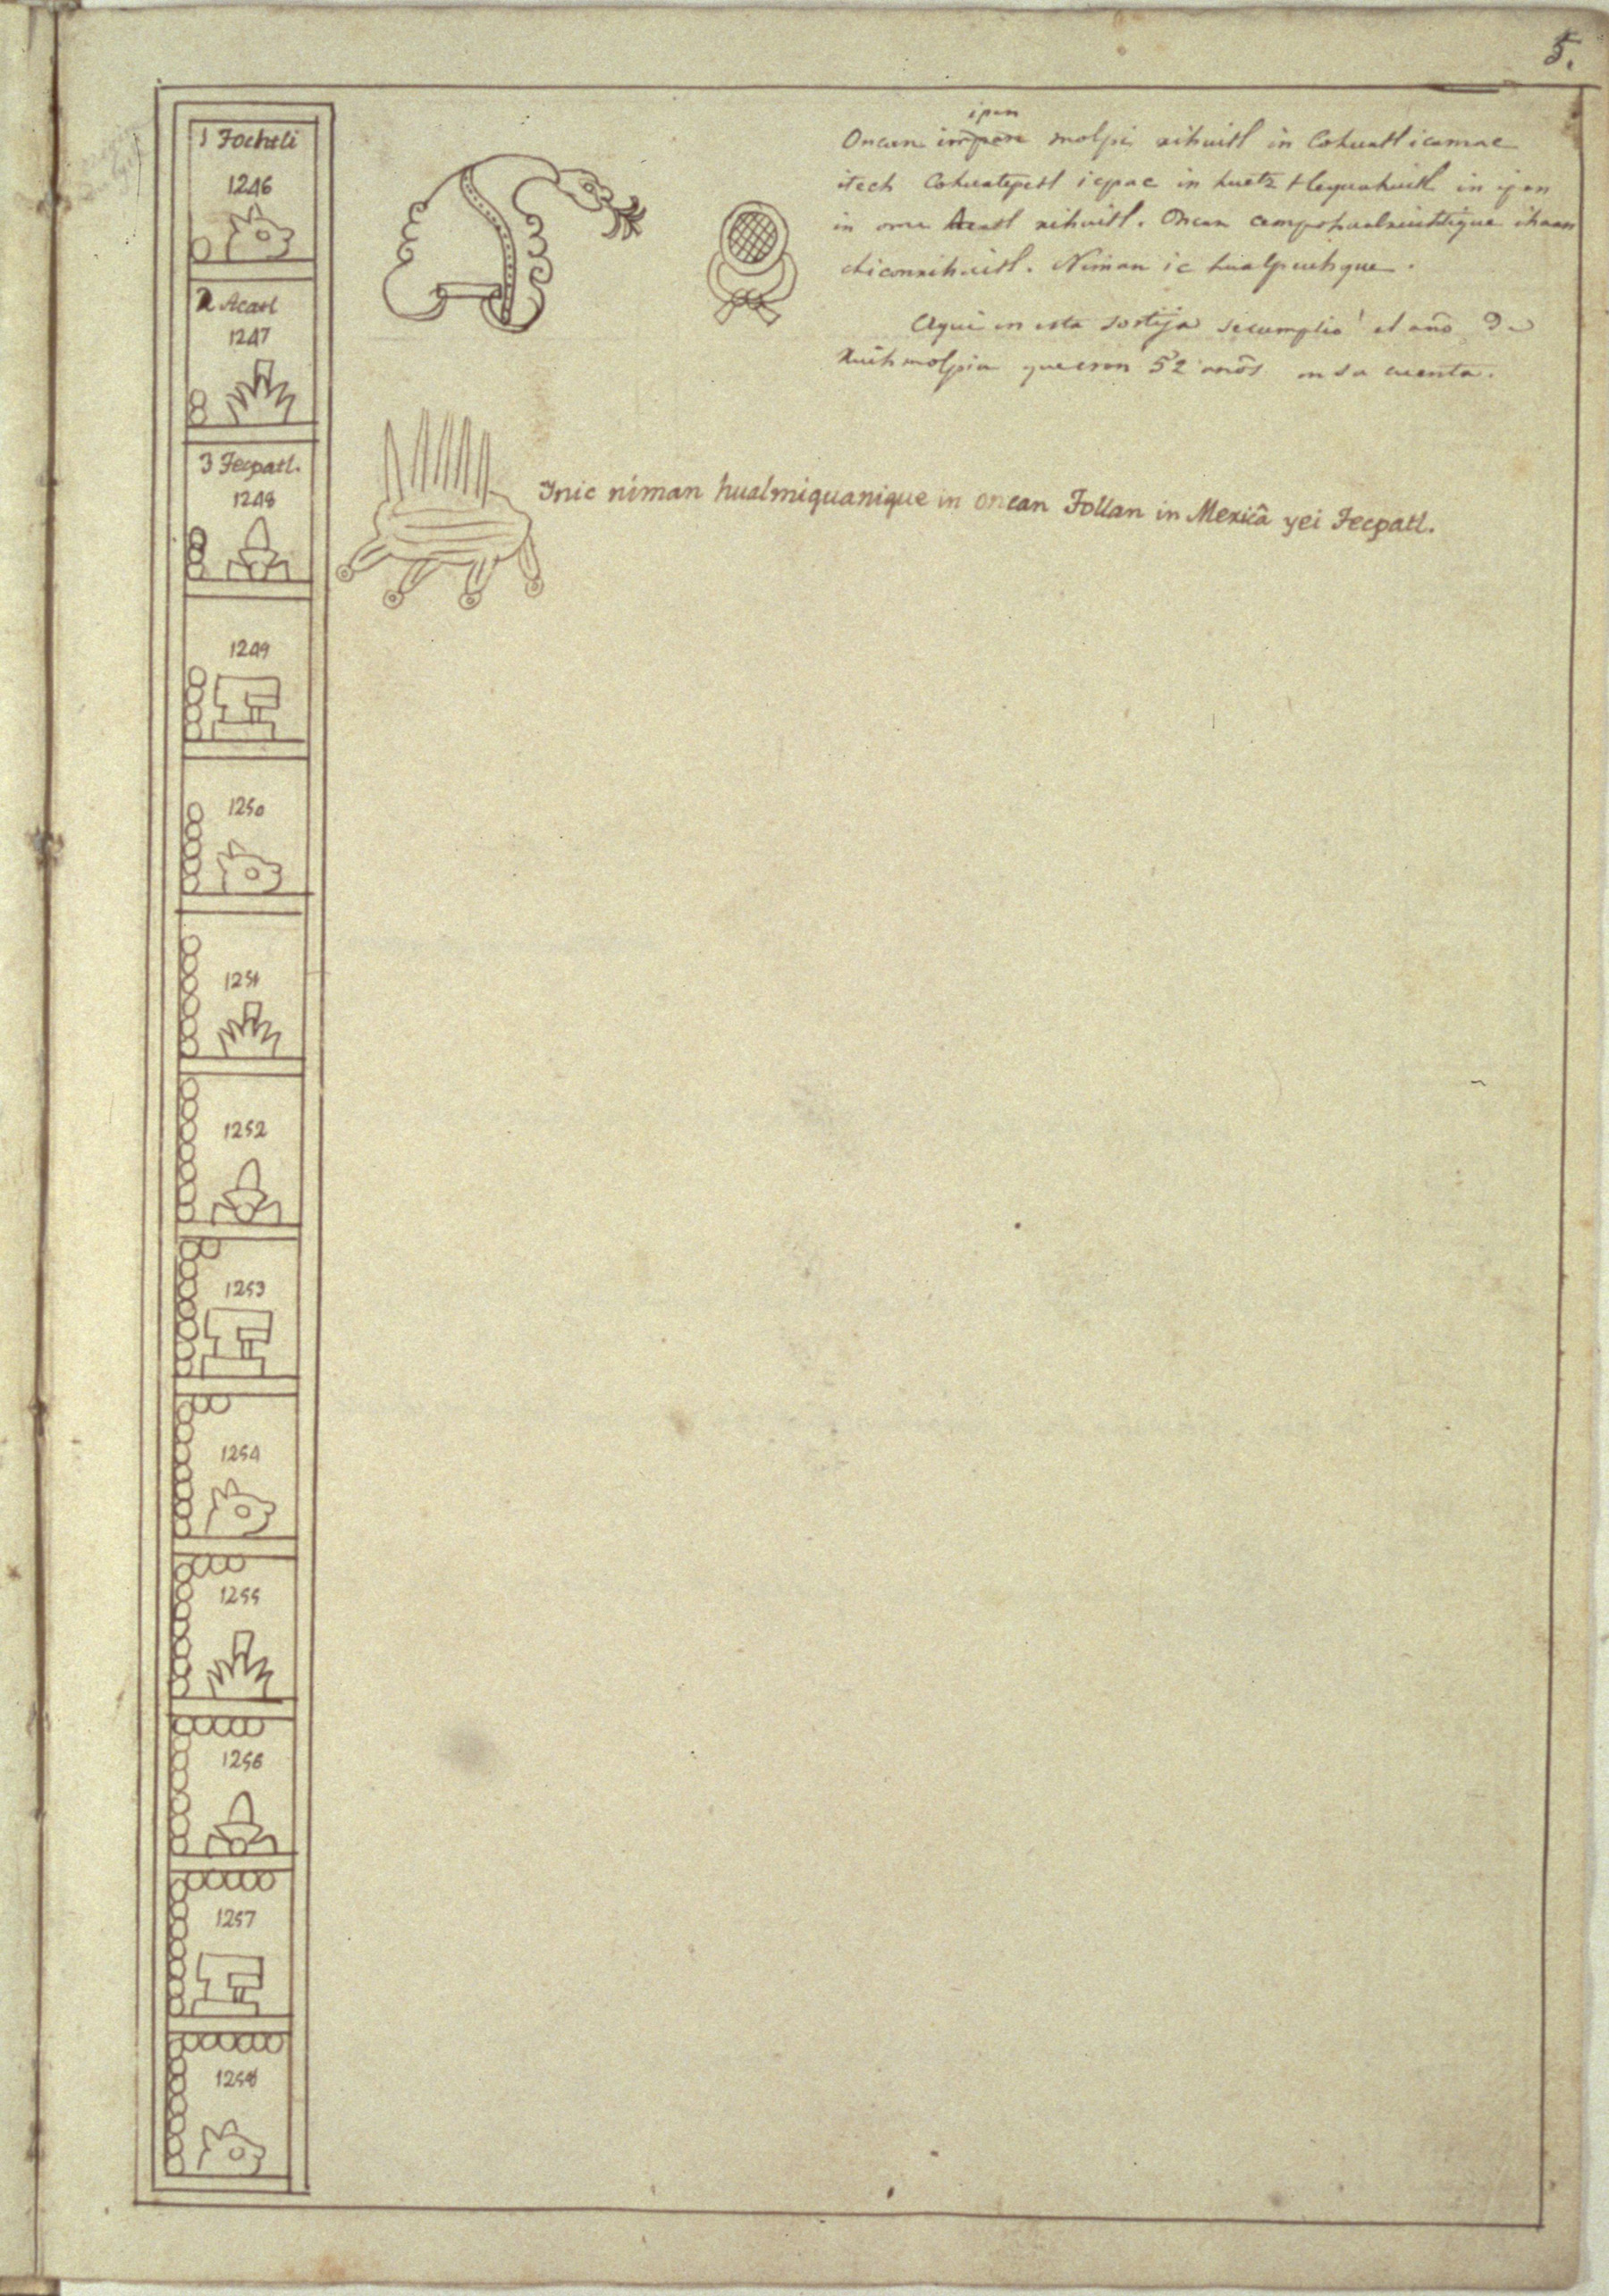 5.
1 Tochtli
1246
2 Acatl
1247
3 Tecpatl.
1248
1249
1250
1251
1252
1253
1254
1255
1256
1257
1258
ipan
Oncan molpi xihuitl in Cohuatl icamac
itech Cohuatepetl icpac in huetz tlequahuitl in ipan
in ome Acatl xihuitl. Oncan cempohualxiuhtique ihuan
chiconxihuitl. Niman ic hualpeuhque.
Aqui en esta sortija se cumplio el año De
Xuihmolpia que eron 52 años en su cuenta.
Inic niman hualmiquanique in oncan Tollan in Mexicâ yei Tecpatl.